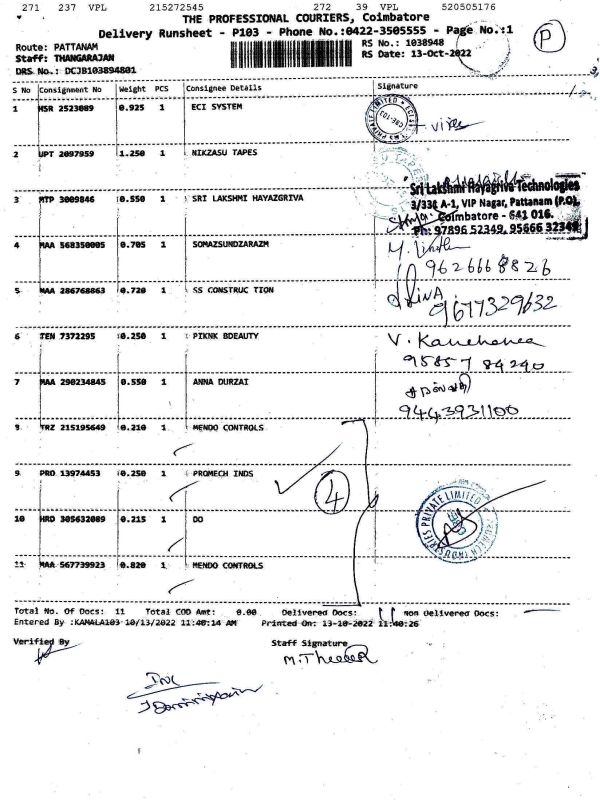 271 237 VPL 215272545 272 39 VPL 520505176
THE PROFESSIONAL COURIERS, Coimbatore
Delivery Runsheet - P103 - Phone No.:0422-3505555 - Page No.:1
P
Route: PATTANAM
RS No.: 1038948
Staff: THANGARAJAN
RS Date: 13-Oct-2022
DRS No.: DCJB103894801
S No Consignment No Weight PCS Consignee Details Signature
1 MSR 2523089 0.925 1 ECI SYSTEM
2 UPT 2097959 1.250 1 NIKZASU TAPES
Sri Lakshmi Hayagriva Technologies
3/33E A-1, VIP Nagar, Pattanam (P.O),
Coimbatore - 641 016.
Ph: 97896 52349, 95666 32349
3 MTP 3009846 0.550 1 SRI LAKSHMI HAYAZGRIVA
4 MAA 568350005 0.705 1 SOMAZSUNDZARAZM
9626668826
5 MAA 286768863 0.720 1 SS CONSTRUC TION
9677329632
6 TEN 7372295 0.250 1 PIKNK BDEAUTY
V. Kanchanea
95857 84240
7 MAA 290234845 0.550 1 ANNA DURZAI
9443931100
8 TRZ 215195649 0.210 1 MENDO CONTROLS
9 PRO 13974453 0.250 1 PROMECH INDS
4
10 HRD 305632089 0.215 1 DO
11 MAA 567739923 0.820 1 MENDO CONTROLS
Total No. Of Docs: 11 Total COD Amt: 0.00 Delivered Docs: 11 non Delivered Docs:
Entered By :KAMALA103 10/13/2022 11:40:14 AM Printed On: 13-10-2022 11:40:26
Verified By
Staff Signature